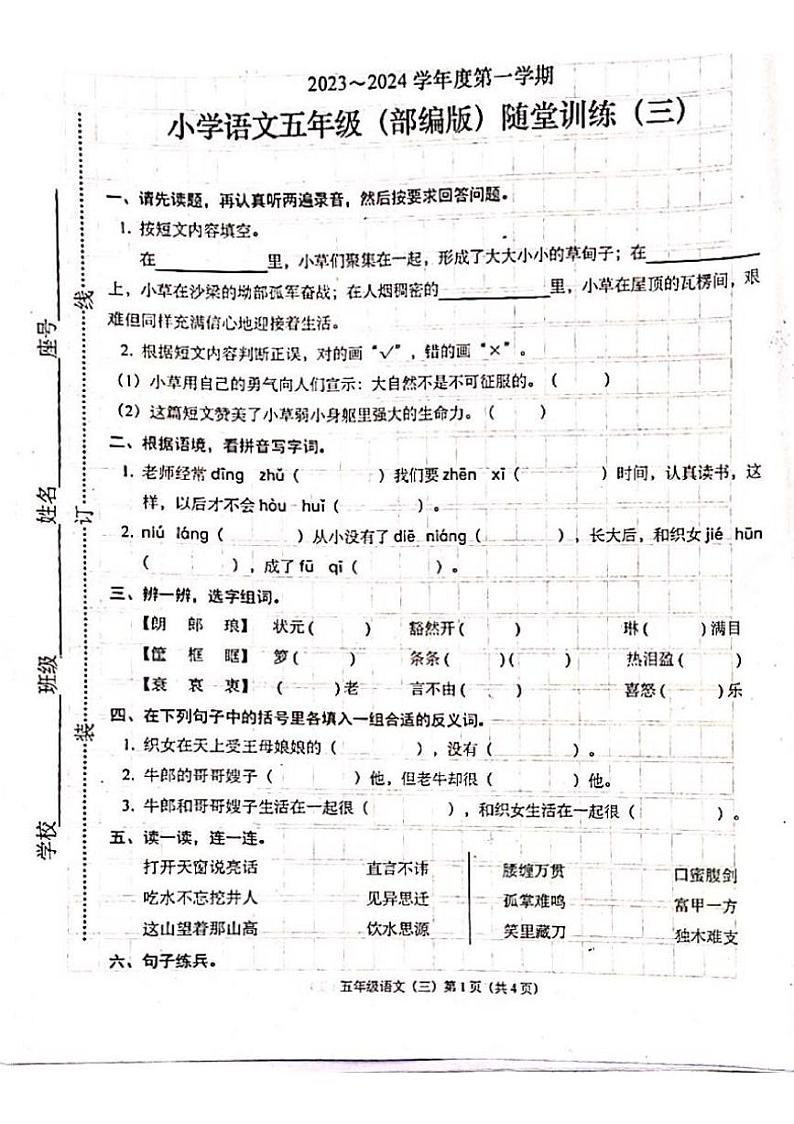 2023～2024 学年度第一学期
小学语文五年级（部编版）随堂训练（三）
一、请先读题，再认真听两遍录音，然后按要求回答问题。
1. 按短文内容填空。
在____________里，小草们聚集在一起，形成了大大小小的草甸子；在____________
上，小草在沙梁的坳部孤军奋战；在人烟稠密的____________里，小草在屋顶的瓦楞间，艰
难但同样充满信心地迎接着生活。
2. 根据短文内容判断正误，对的画“√”，错的画“×”。
（1）小草用自己的勇气向人们宣示：大自然不是不可征服的。（　　）
（2）这篇短文赞美了小草弱小身躯里强大的生命力。（　　）
二、根据语境，看拼音写字词。
1. 老师经常 dīng zhǔ（　　　　）我们要 zhēn xī（　　　　）时间，认真读书，这
样，以后才不会 hòu huǐ（　　　　）。
2. niú láng（　　　　）从小没有了 diē niáng（　　　　），长大后，和织女 jié hūn
（　　　　），成了 fū qī（　　　　）。
三、辨一辨，选字组词。
【朗 郎 琅】 状元（　　） 豁然开（　　） 琳（　　）满目
【筐 框 眶】 箩（　　） 条条（　　）（　　） 热泪盈（　　）
【衰 哀 衷】 （　　）老 言不由（　　） 喜怒（　　）乐
四、在下列句子中的括号里各填入一组合适的反义词。
1. 织女在天上受王母娘娘的（　　　　），没有（　　　　）。
2. 牛郎的哥哥嫂子（　　　　）他，但老牛却很（　　　　）他。
3. 牛郎和哥哥嫂子生活在一起很（　　　　），和织女生活在一起很（　　　　）。
五、读一读，连一连。
打开天窗说亮话 直言不讳 腰缠万贯 口蜜腹剑
吃水不忘挖井人 见异思迁 孤掌难鸣 富甲一方
这山望着那山高 饮水思源 笑里藏刀 独木难支
六、句子练兵。
五年级语文（三）第 1 页（共 4 页）
学校 班级 姓名 座号
装 订 线